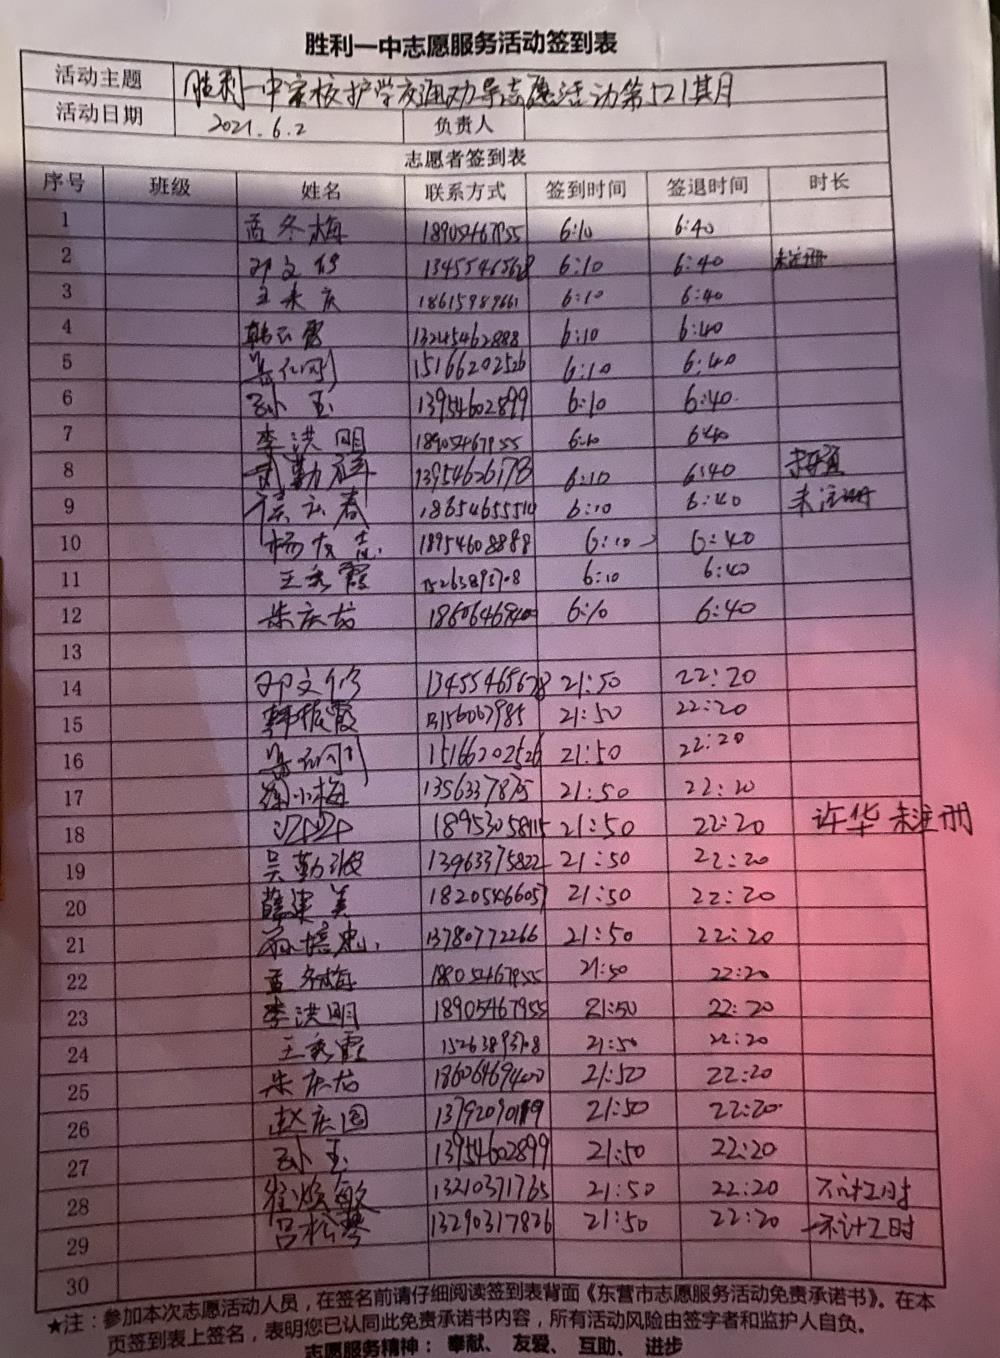 胜利一中志愿服务活动签到表
活动主题 胜利一中家校护学交通劝导志愿活动第521期
活动日期 2021.6.2 负责人
志愿者签到表
序号 班级 姓名 联系方式 签到时间 签退时间 时长
1 孟冬梅 18905467955 6:10 6:40
2 邓文修 13455465678 6:10 6:40 未注册
3 王来庆 18615989661 6:10 6:40
4 韩云霄 13245462888 6:10 6:40
5 15166202526 6:10 6:40
6 孙玉 13954602899 6:10 6:40
7 李洪明 18905467955 6:10 6:40
8 武勤 13954626178 6:10 6:40
9 云春 18654655514 6:10 6:40 未注册
10 杨友志 18954608888 6:10 6:40
11 王秀霞 6:10 6:40
12 朱庆龙 6:10 6:40
13
14 邓文修 13455465678 21:50 22:20
15 韩振霞 21:50 22:20
16 15166202526 21:50 22:20
17 小梅 21:50 22:20
18 21:50 22:20 许华 未注册
19 吴勤波 13963375822 21:50 22:20
20 薛建美 18205466057 21:50 22:20
21 13780772266 21:50 22:20
22 孟冬梅 18905467955 21:50 22:20
23 李洪明 18905467955 21:50 22:20
24 王秀霞 21:50 22:20
25 朱庆龙 18606469400 21:50 22:20
26 赵庆国 21:50 22:20
27 孙玉 13954602899 21:50 22:20
28 敏 13210371765 21:50 22:20 不计工时
29 吕松琴 13290317826 21:50 22:20 不计工时
30
★注：参加本次志愿活动人员，在签名前请仔细阅读签到表背面《东营市志愿服务活动免责承诺书》。在本
页签到表上签名，表明您已认同此免责承诺书内容，所有活动风险由签字者和监护人自负。
志愿服务精神：奉献、友爱、互助、进步